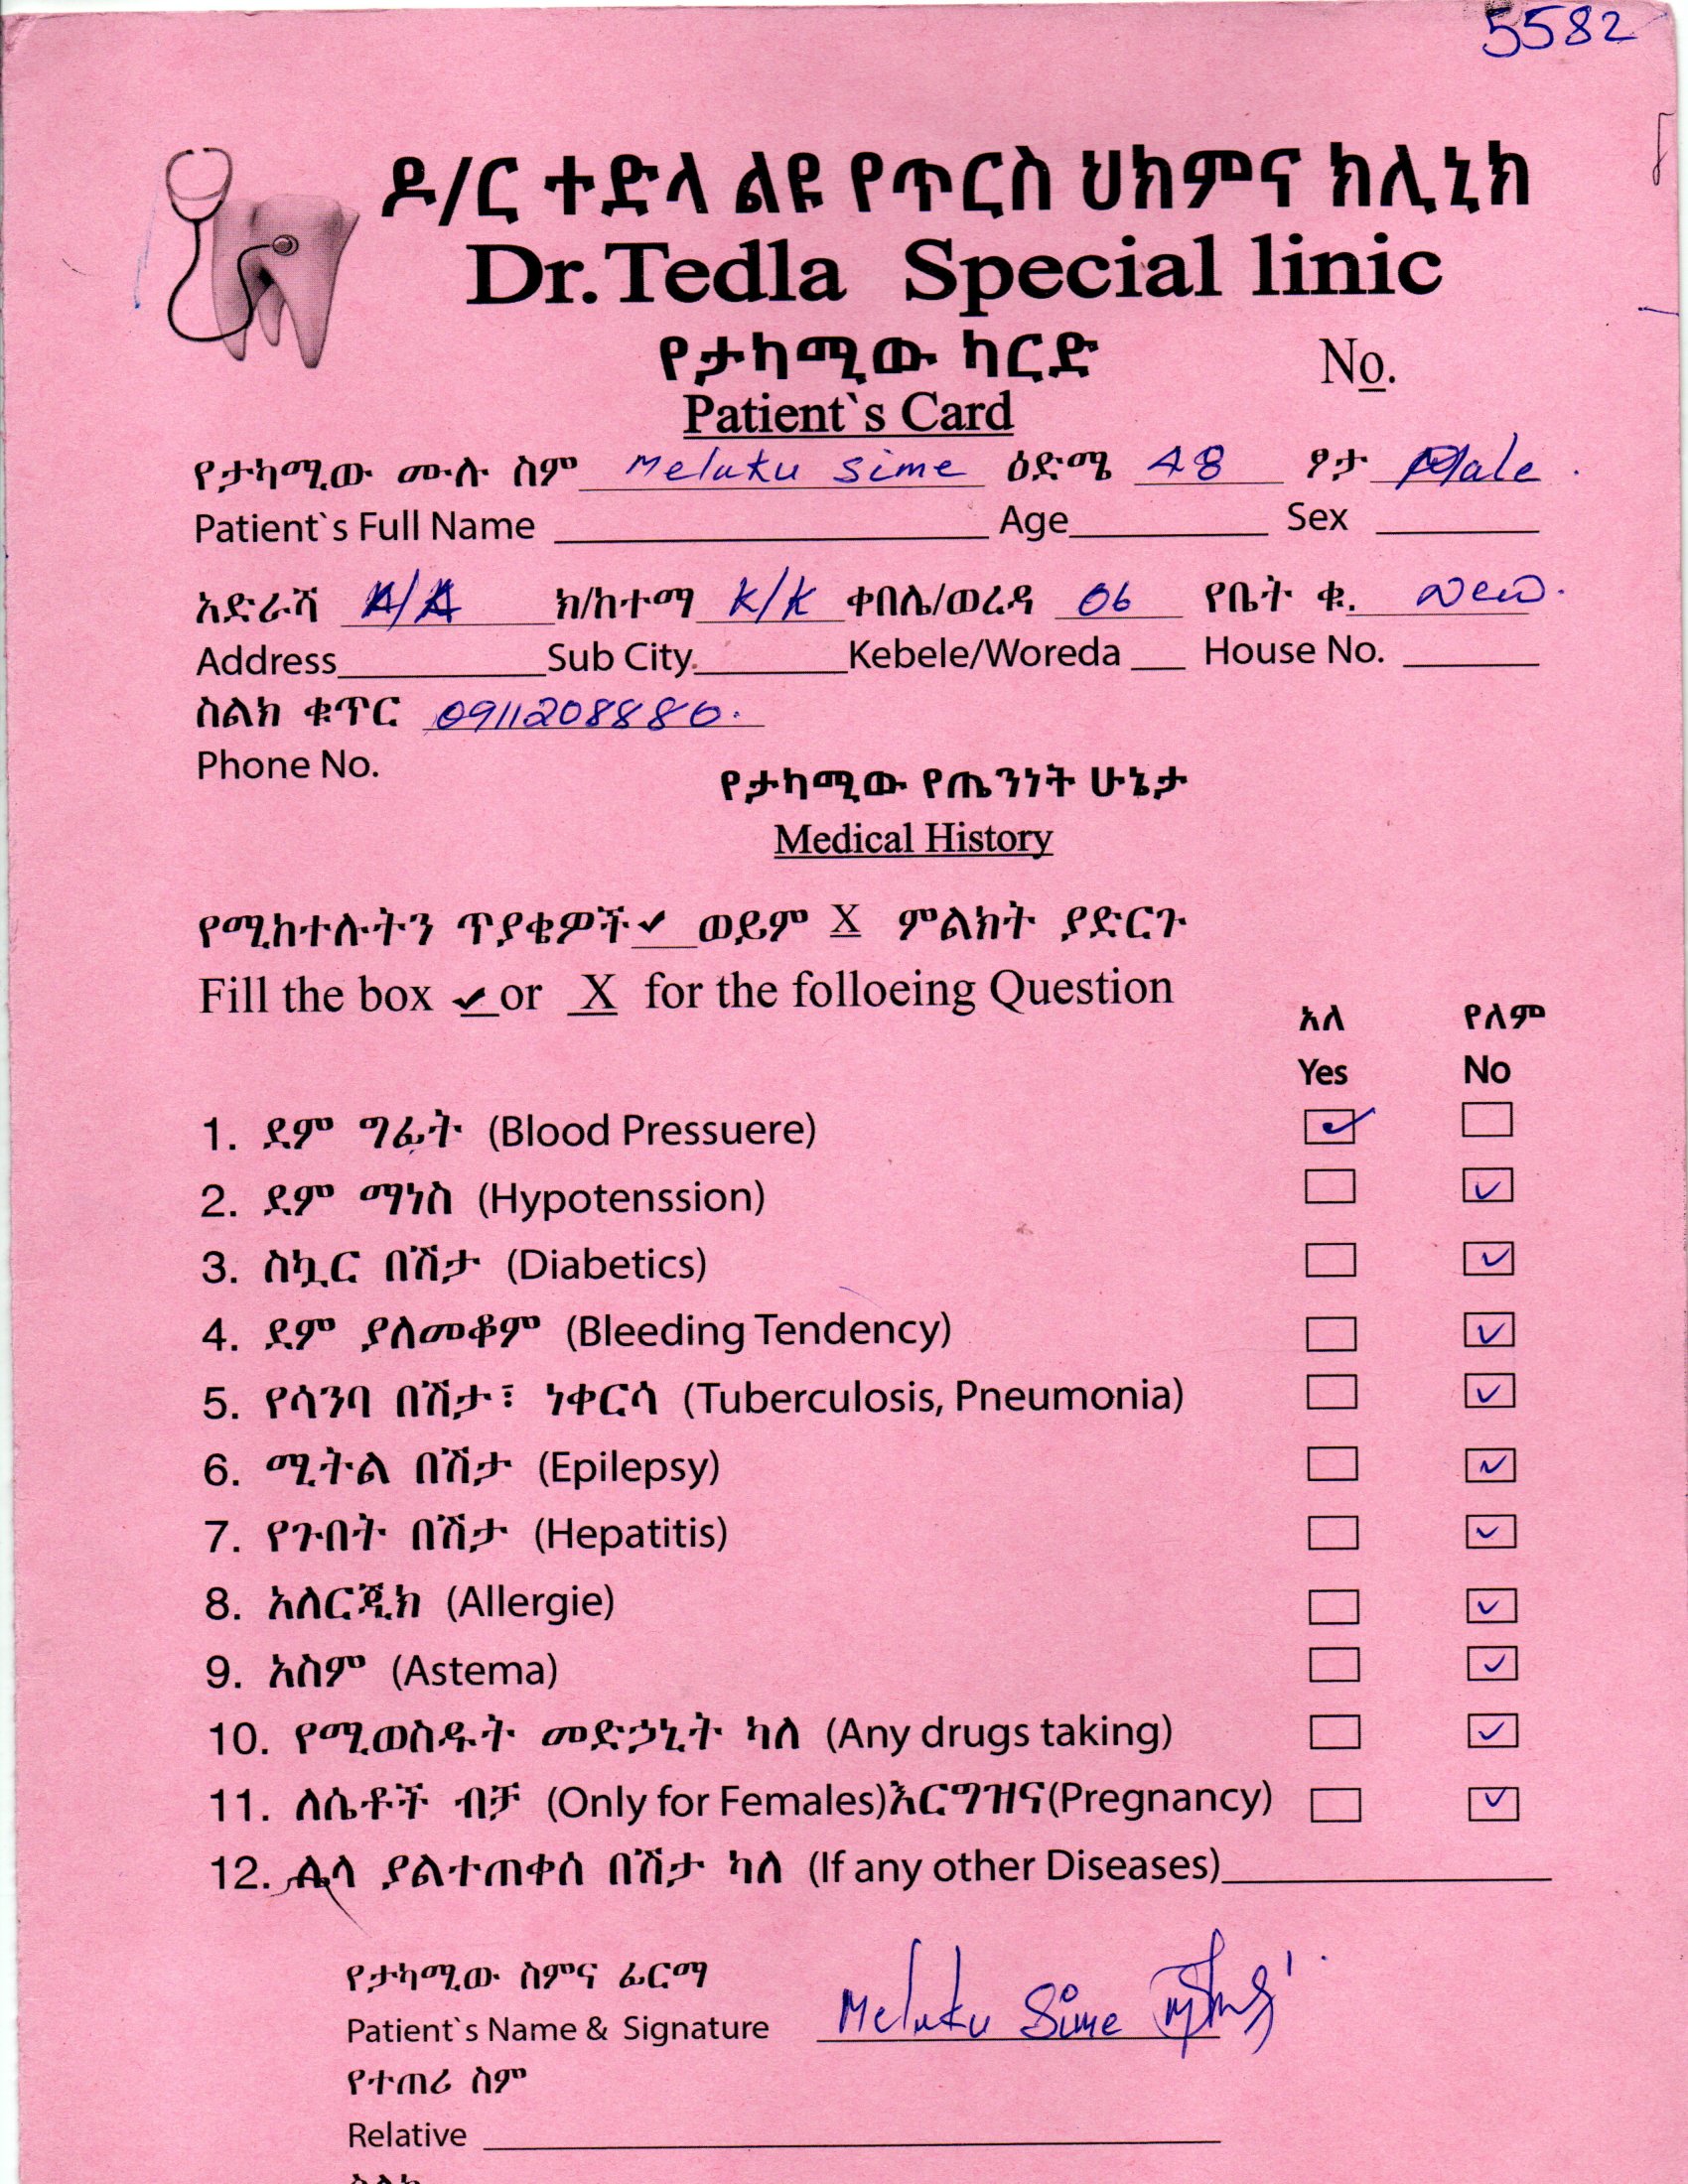 5582
ዶ/ር ተድላ ልዩ የጥርስ ህክምና ክሊኒክ
Dr.Tedla Special linic
የታካሚው ካርድ
No.
Patient`s Card
የታካሚው ሙሉ ስም Meluku Sime ዕድሜ 48 ፆታ Male
Patient`s Full Name Age Sex
አድራሻ A/A ክ/ከተማ K/K ቀበሌ/ወረዳ 06 የቤት ቁ. New.
Address Sub City Kebele/Woreda House No.
ስልክ ቁጥር 0911208880.
Phone No.
የታካሚው የጤንነት ሁኔታ
Medical History
የሚከተሉትን ጥያቄዎች✔ ወይም X ምልክት ያድርጉ
Fill the box ✔ or X for the folloeing Question
አለ የለም
Yes No
1. ደም ግፊት (Blood Pressuere) ✓
2. ደም ማነስ (Hypotenssion) ✓
3. ስኳር በሽታ (Diabetics) ✓
4. ደም ያለመቆም (Bleeding Tendency) ✓
5. የሳንባ በሽታ፣ ነቀርሳ (Tuberculosis, Pneumonia) ✓
6. ሚትል በሽታ (Epilepsy) ✓
7. የጉበት በሽታ (Hepatitis) ✓
8. አለርጂክ (Allergie) ✓
9. አስም (Astema) ✓
10. የሚወስዱት መድኃኒት ካለ (Any drugs taking) ✓
11. ለሴቶች ብቻ (Only for Females)እርግዝና(Pregnancy) ✓
12. ሌላ ያልተጠቀሰ በሽታ ካለ (If any other Diseases)
የታካሚው ስምና ፊርማ
Patient`s Name & Signature Meluku Sime
የተጠሪ ስም
Relative